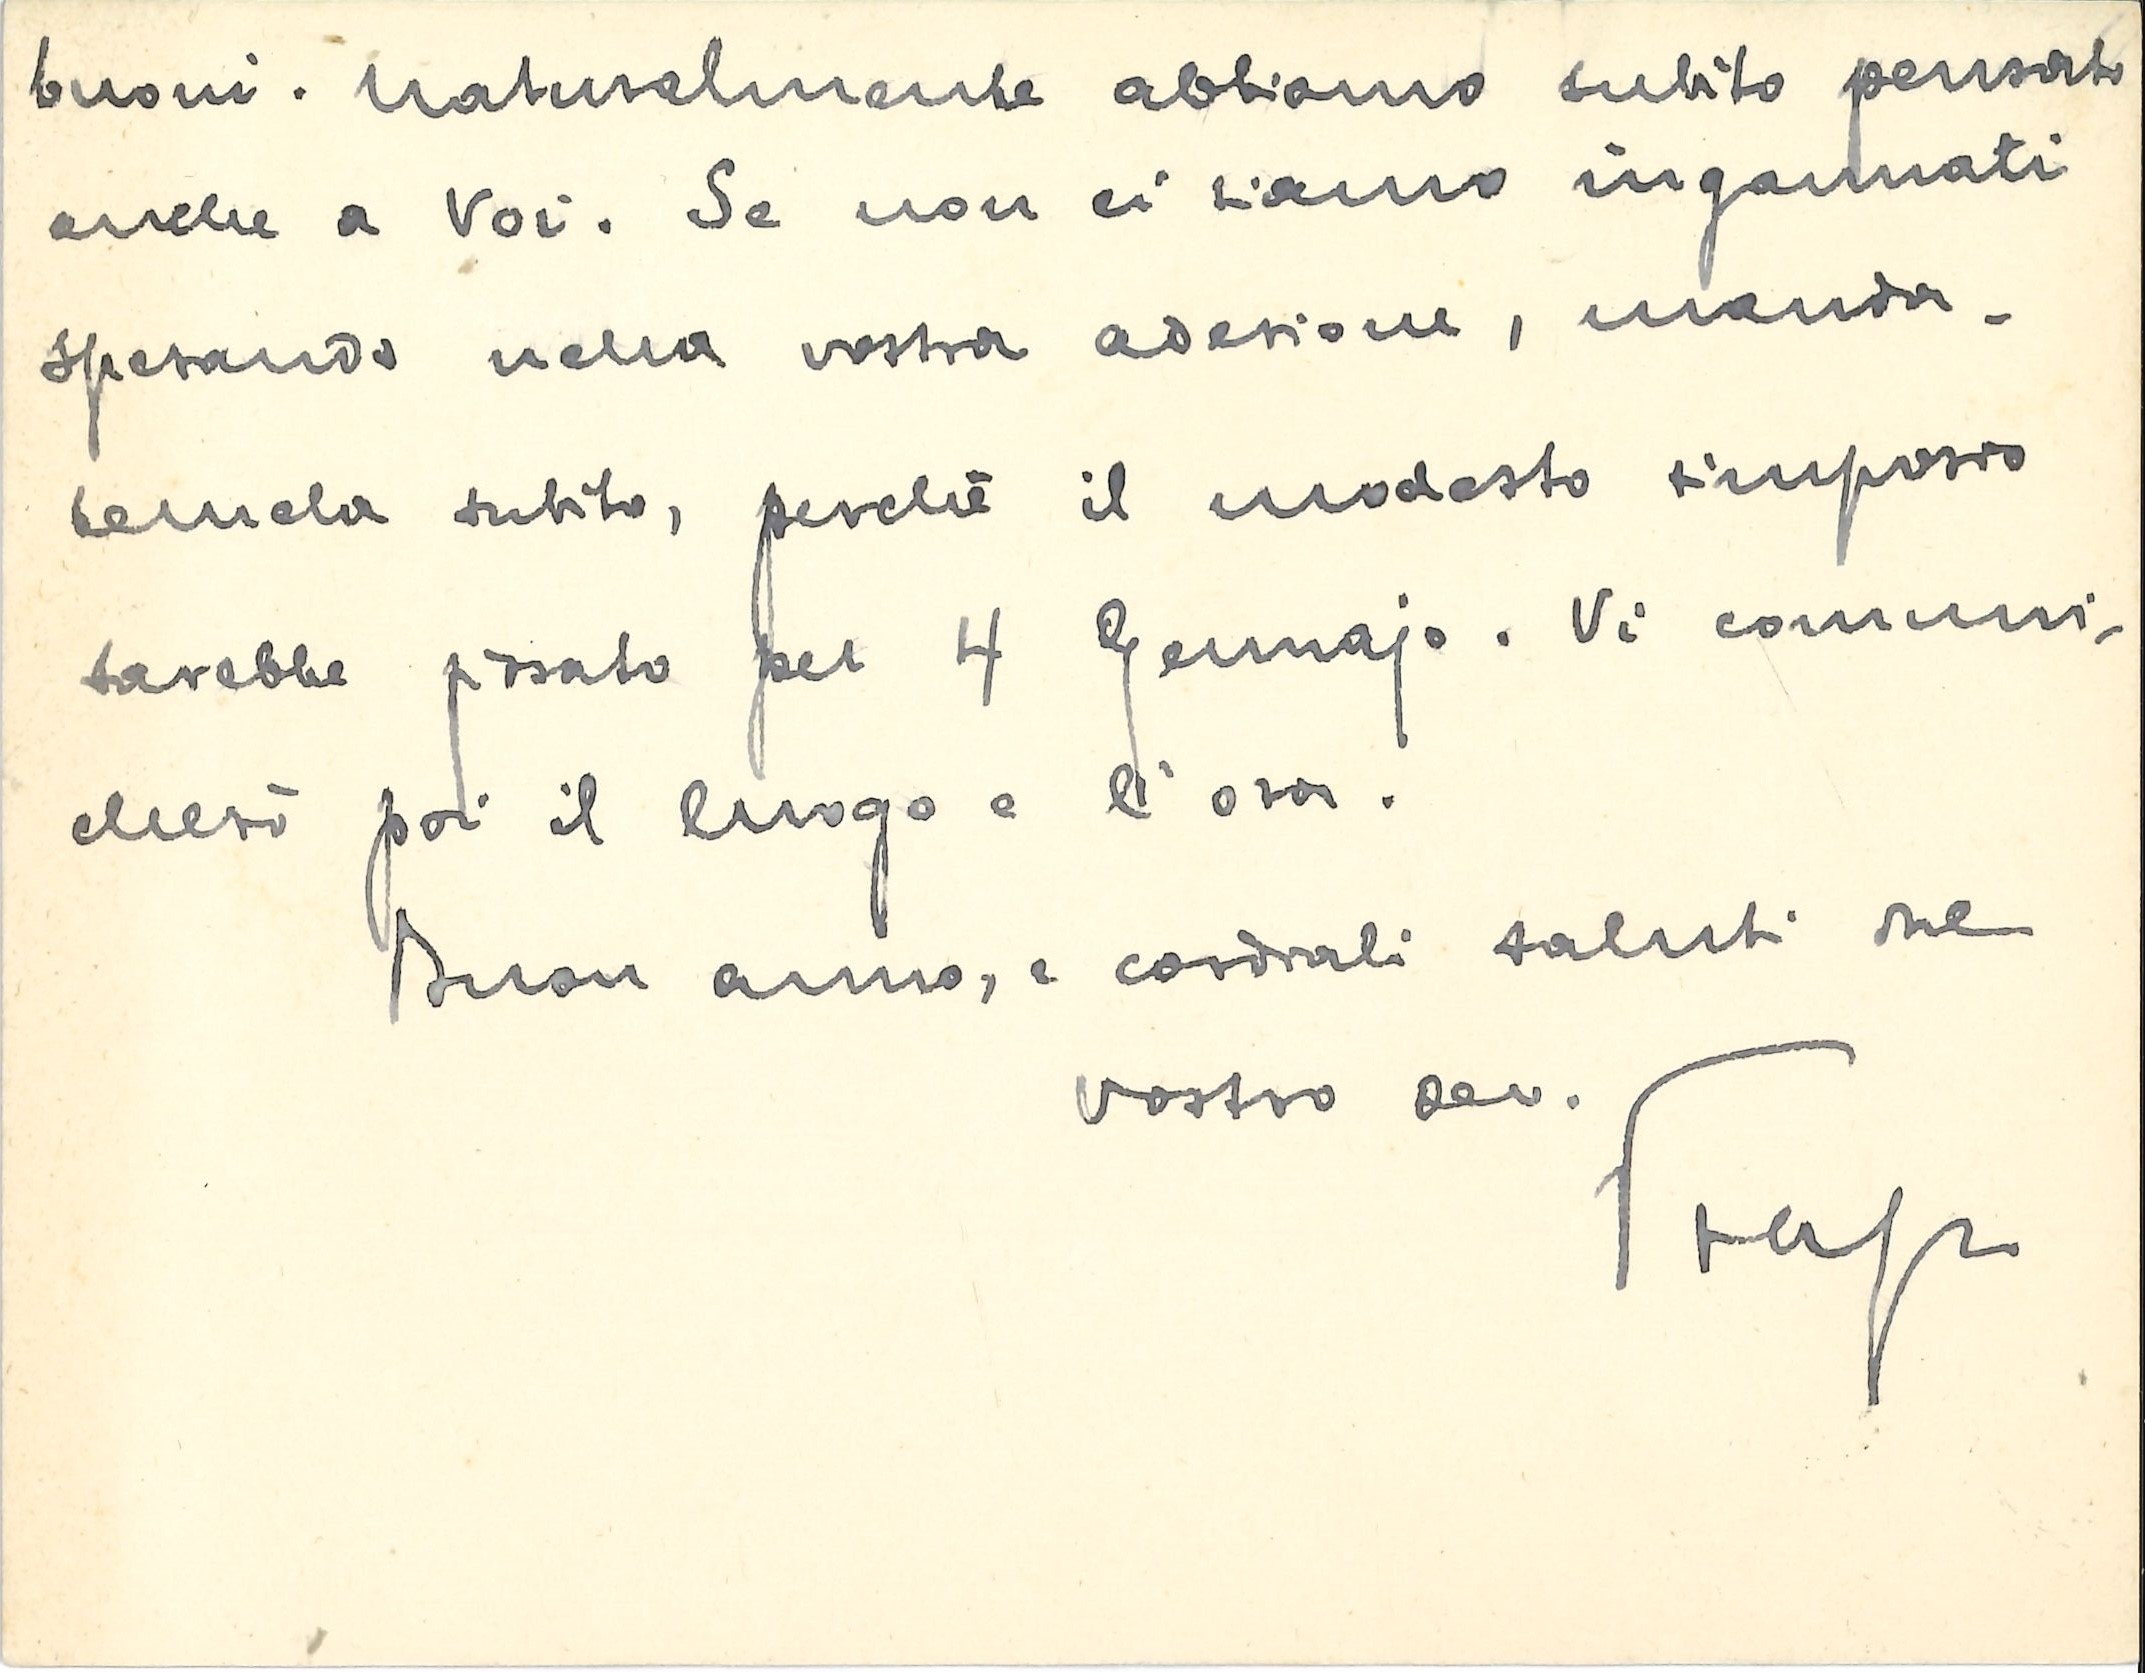 buoni. Naturalmente abbiamo subito pensato
anche a Voi. Se non ci siamo ingannati
sperando nella vostra adesione, manda-
temela subito, perchè il modesto simposio
sarebbe fissato per 4 Gennajo. Vi comuni-
cherò poi il luogo e l'ora.
Buon anno, e cordiali saluti del
vostro dev.